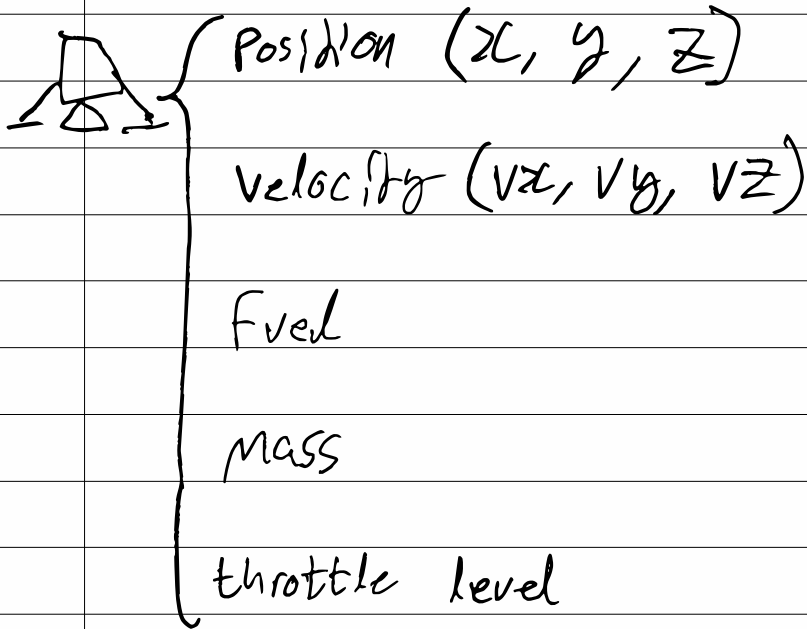 Position (x, y, z)
velocity (vx, vy, vz)
Fuel
Mass
throttle level